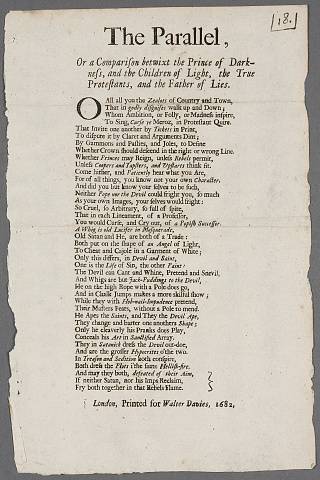 [18.]
The Parallel,
Or a Compariſon betwixt the Prince of Dark-
neſs, and the Children of Light, the True
Proteſtants, and the Father of Lies.
O All all you the Zealots of Country and Town,
That in godly diſguiſes walk up and Down;
Whom Ambition, or Folly, or Madneſs inſpire,
To Sing, Curſe ye Meroz, in Proteſtant Quire.
That Invite one another by Tickets in Print,
To diſpute it by Claret and Arguments Dint;
By Gammons and Paſties, and Joles, to Define
Whether Crown ſhould deſcend in the right or wrong Line.
Whether Princes may Reign, unleſs Rebels permit,
Unleſs Coopers and Tapſters, and Upſtarts think fit.
Come hither, and Patiently hear what you Are,
For of all things, you know not your own Character.
And did you but know your ſelves to be ſuch,
Neither Pope nor the Devil could fright you, ſo much
As your own Images, your ſelves would fright:
So Cruel, ſo Arbitrary, ſo full of ſpite,
That in each Lineament, of a Profeſſor,
You would Curſe, and Cry out, of a Popiſh Succeſſor.
A Whig is old Lucifer in Maſquerade,
Old Satan and He, are both of a Trade:
Both put on the ſhape of an Angel of Light,
To Cheat and Cajole in a Garment of White;
Only this differs, in Devil and Saint,
One is the Life of Sin, the other Paint:
The Devil can Cant and Whine, Pretend and Snevil,
And Whigs are but Jack-Puddings to the Devil,
He on the high Rope with a Pole does go,
And in Claſſic Jumps makes a more skilful ſhow;
While they with Hob-nail-Impudence pretend,
Their Maſters Feats, without a Pole to mend.
He Apes the Saints, and They the Devil Ape,
They change and barter one anothers Shape;
Only he cleaverly his Pranks does Play,
Conceals his Art in Sanctified Array.
They in Satanick dreſs the Devil out-doe,
And are the groſſer Hypocrites o'the two.
In Treaſon and Sedition both conſpire,
Both dreſs the Plots i'the ſame Helliſh-fire.
And may they both, defeated of their Aim,
If neither Satan, nor his Imps Reclaim,
Fry both together in that Rebels Flame.
London, Printed for Walter Davies, 1682,